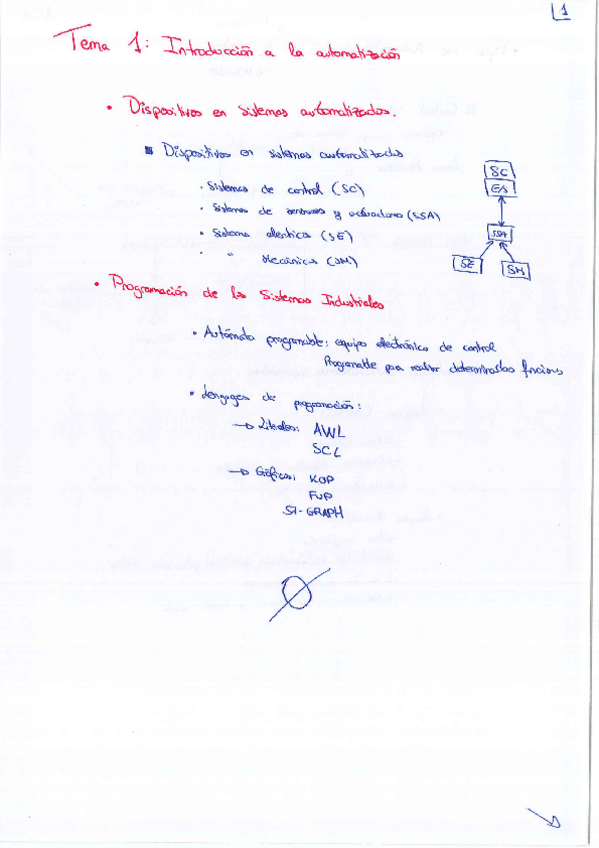 1
Tema 1: Introducción a la automatización
• Dispositivos en sistemas automatizados.
▪ Dispositivos en sistemas automatizados
· Sistemas de control (SC)
· Sistemas de sensores y actuadores (SSA)
· Sistema eléctrico (SE)
· " Mecánico (SM)
SC
SSA
SE
SM
• Programación de los Sistemas Industriales
• Autómata programable: equipo electrónico de control
Programable para realizar determinadas funciones
• Lenguajes de programación:
→ Literales: AWL
SCL
→ Gráficos: KOP
FUP
S7-GRAPH